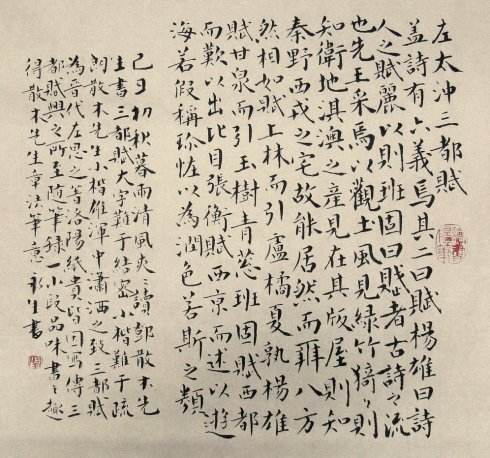 左太沖三都賦
盖詩有六義焉其二曰賦楊雄曰詩
人之賦麗以則班固曰賦者古詩之流
也先王采焉以觀土風見緑竹猗々則
知衛地淇澳之產見在其版屋則知
秦野西戎之宅故能居然而辨八方
然相如賦上林而引盧橘夏熟楊雄
賦甘泉而引玉樹青葱班固賦西都
而歎以出比目張衡賦西京而述以遊
海若假稱珍怪以為潤色若斯之類
己丑初秋暮雨清風爽々讀鄧散木先
生書三都賦大字難于結密小楷難于疏
朗散木先生小楷雄渾中瀟洒之致三都賦
為晉代左思之著洛陽紙貴皆因写傳三
都賦興之所至随筆録一小段品味書之趣
得散木先生章法筆意 生書